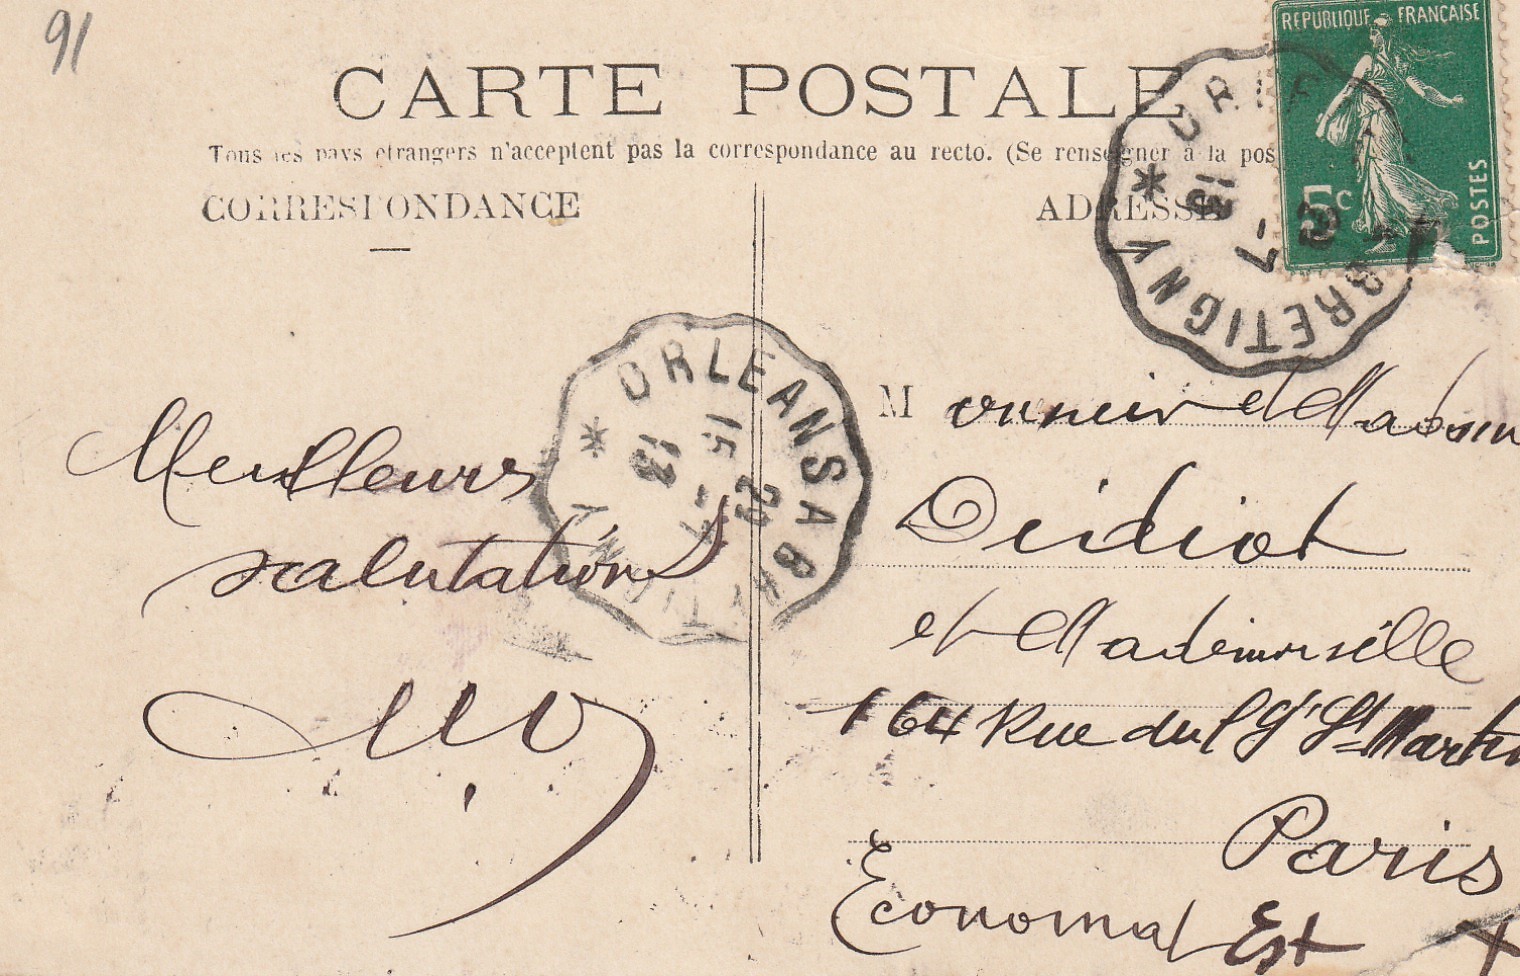 91
CARTE POSTALE
Tous les pays etrangers n'acceptent pas la correspondance au recto. (Se renseigner à la pos
CORRESPONDANCE
ADRESSE
REPUBLIQUE FRANÇAISE
5c
POSTES
BRETIGNY
13
ORLEANS A BRETIGNY
15 - 7
13
Meilleurs
salutations
M onsieur et Madam
Didiot
et Mademoiselle
164 Rue du fg St Martin
Paris
Economat Est